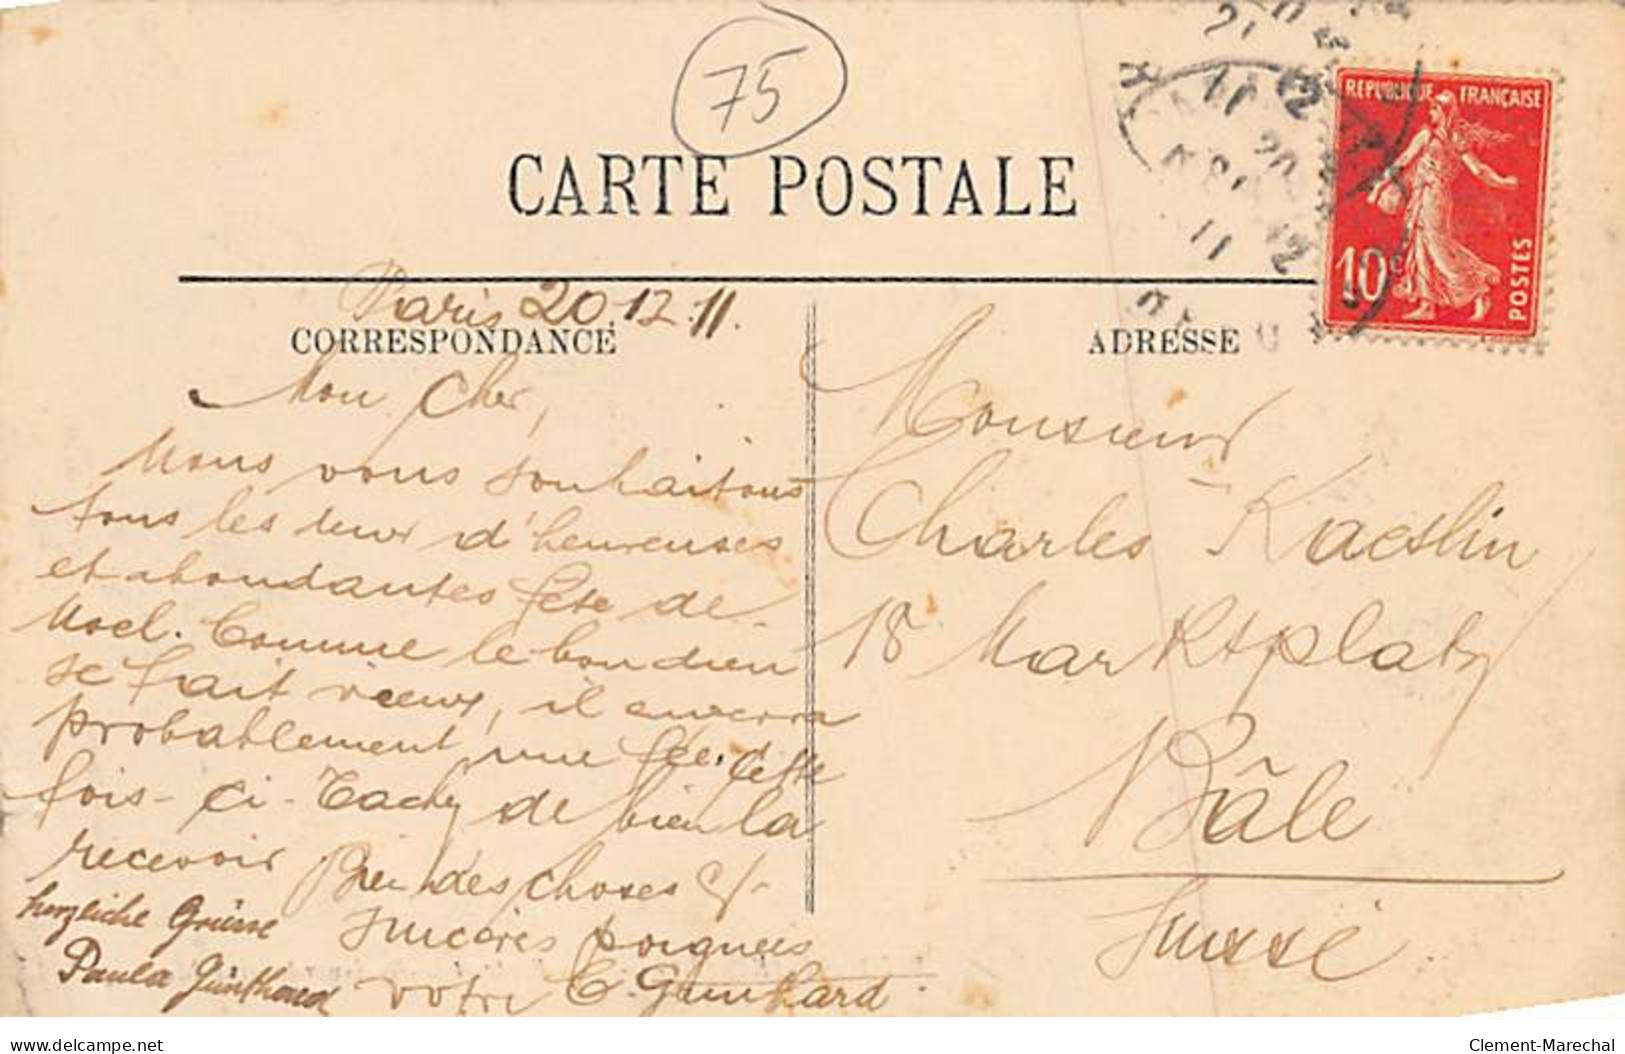 75
CARTE POSTALE
REPUBLIQUE FRANÇAISE
10c
POSTES
Paris 20.12.11.
CORRESPONDANCE
Mon Cher,
Nous vous souhaitons
tous les deux d'heureuses
et abondantes fête de
Noel. Comme le bon dieu
se fait vieux, il enverra
probablement une fée. Cette
fois-ci - Tachez de bien la
recevoir Bien des choses &
sincères poignees
votre E. Gunthard
herzliche Grüsse
Paula Günthard
ADRESSE
Monsieur
Charles Kaeslin
18 Marktplatz
Bâle
Suisse
delcampe.net
Clement-Marechal